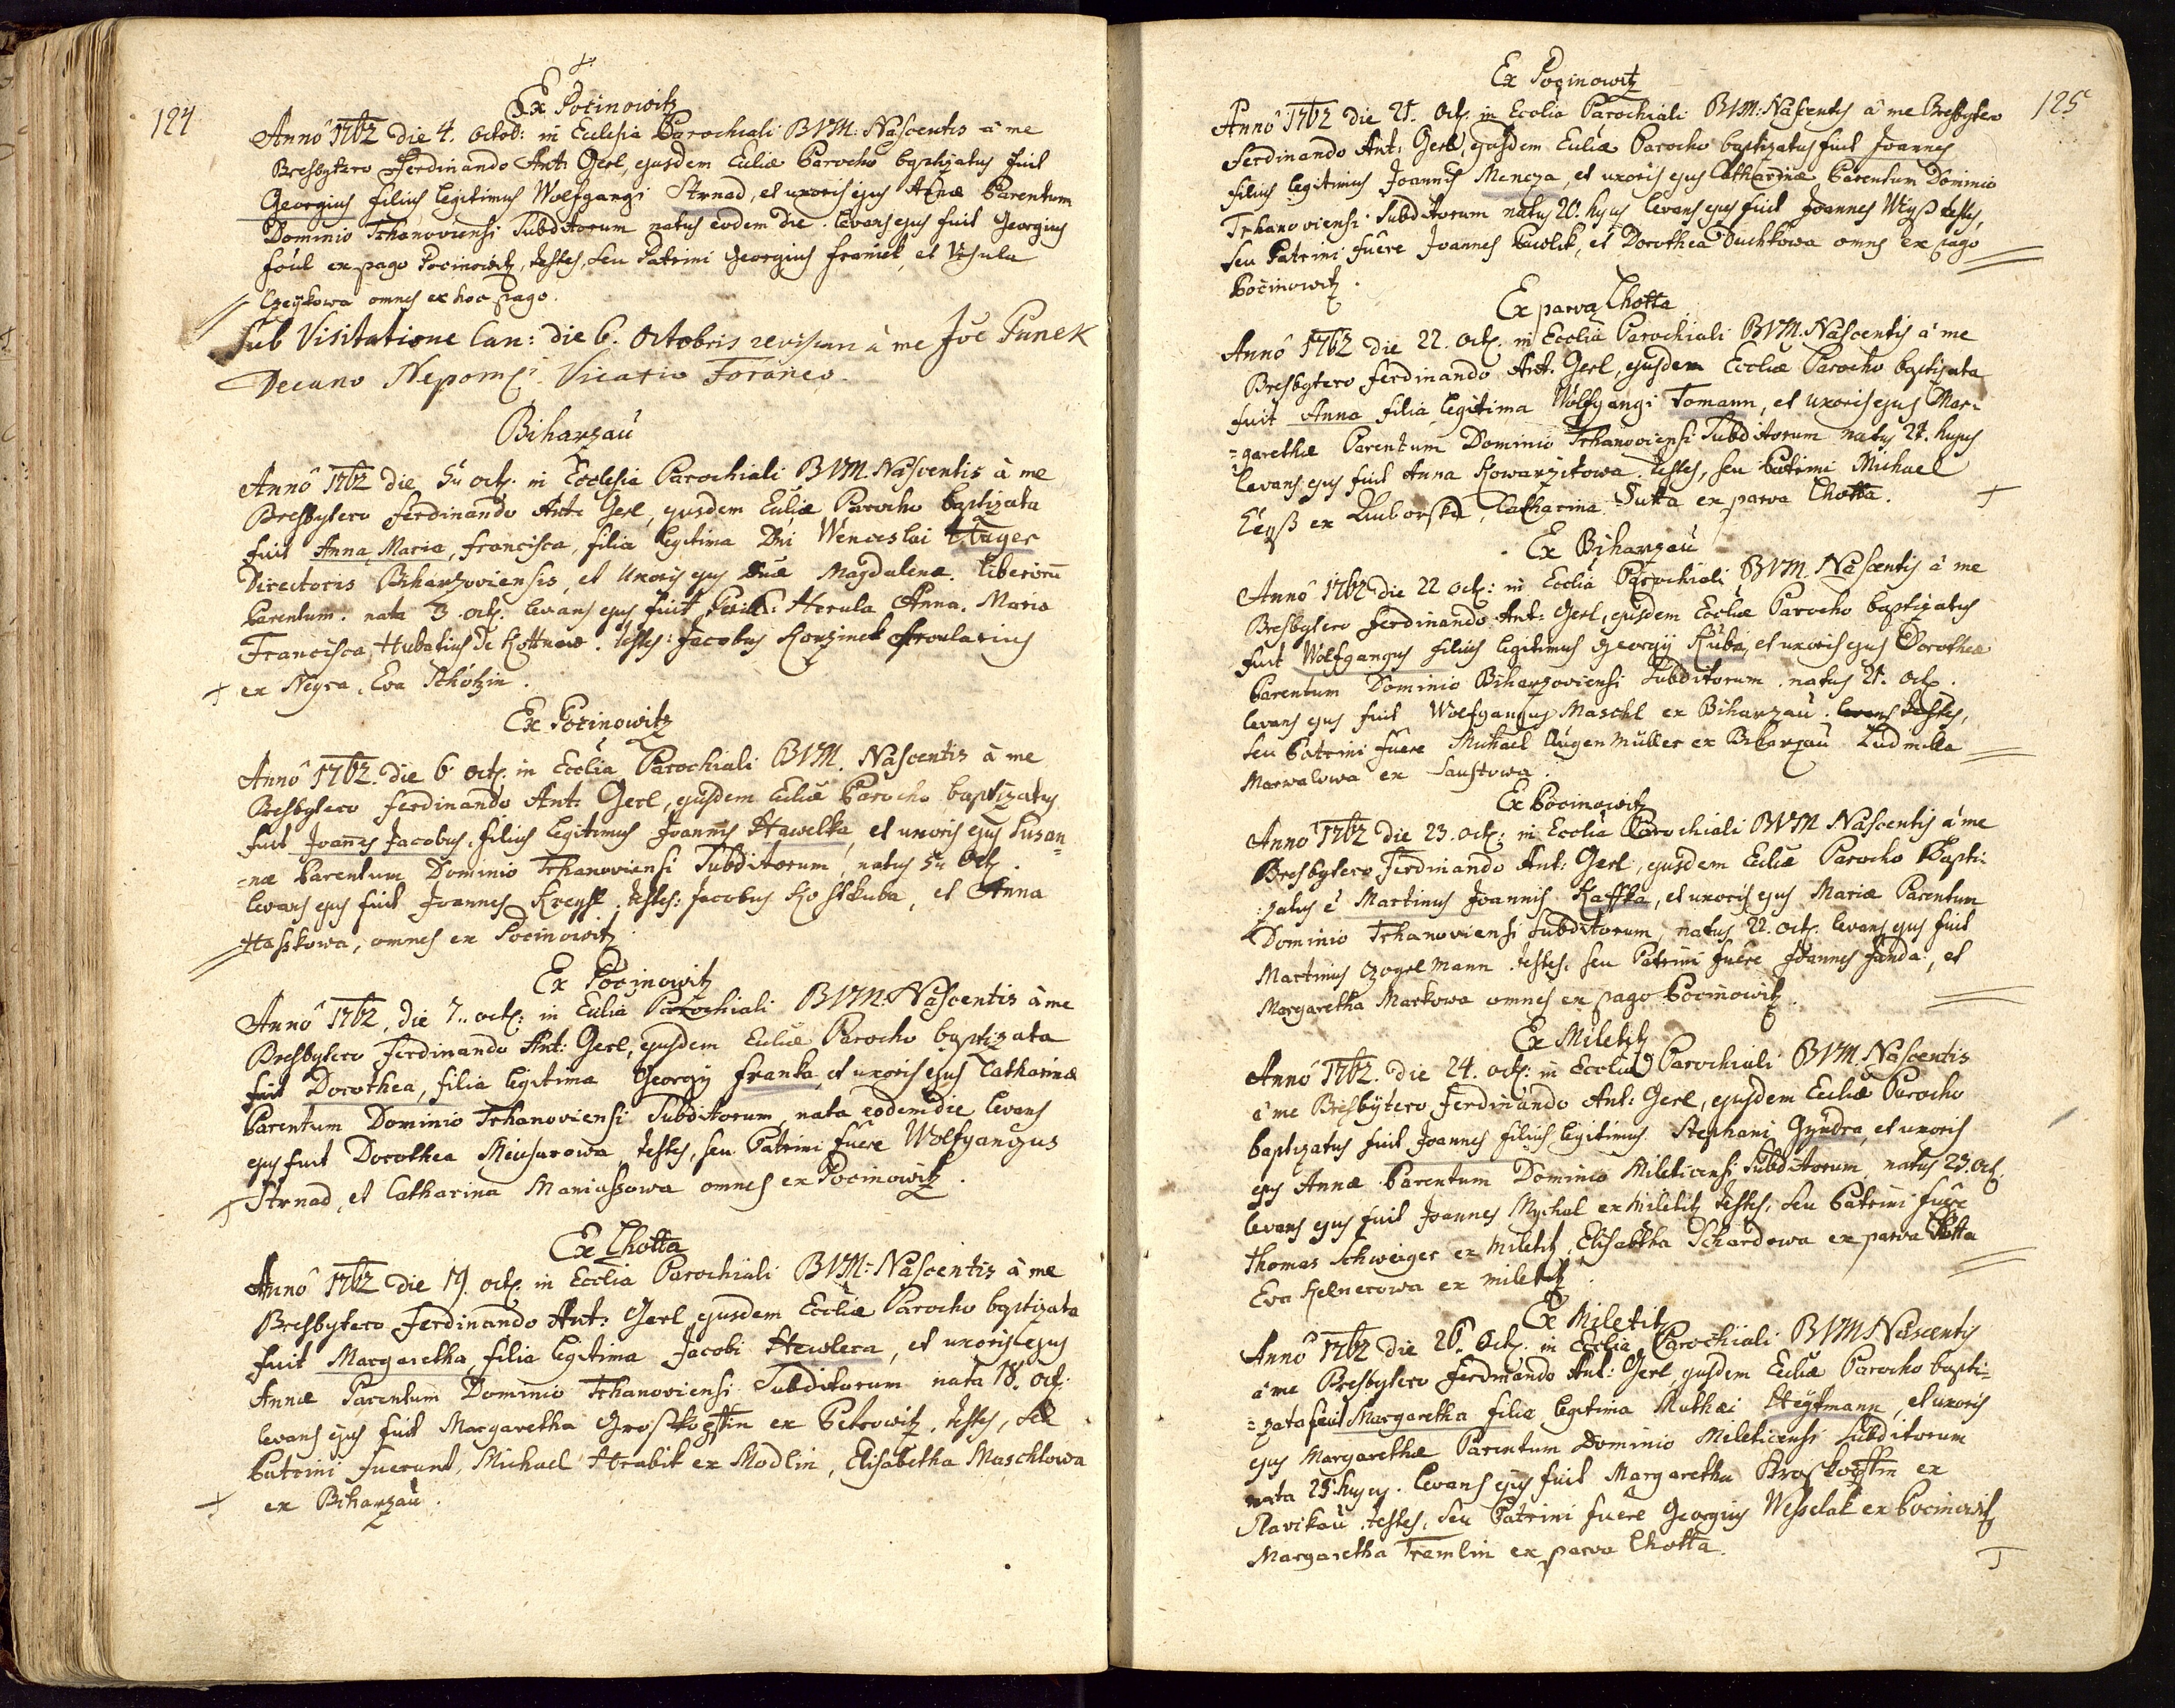 124
Ex Pocinowitz
Anno 1762 die 4. Octob: in Eclesia Parochiali BVM: Nascentis à me
Presbytero Ferdinando Ant: Gerl, ejusdem Eccliæ Parocho baptizatus fuit
Georgius filius legitimus Wolfgangi Strnad, et uxoris ejus Annæ Parentum
Dominio Trhanoviensi Subditorum natus eodem die. levans ejus fuit Georgius
foül ex pago Pocinowitz, testes, seu Patrini Georgius franiek, et Ursula
omnes ex hoc pago.
Sub Visitatione Can: die 6. Octobris revisum à me Joe Punek
Decano Nepom: Vicario Foraneo.
Biharzau
Anno 1762 die 5ta oct. in Ecclesia Parochiali BVM. Nascentis à me
Presbytero ferdinando Ant: Gerl, ejusdem Eccliæ Parocho baptizata
fuit Anna Maria, francisca, filia legitima Dni Wenceslai
Directoris Biharzoviensis, et Uxoris ejus Dnæ Magdalenæ. liberorum
Parentum. nata 3 oct. levans ejus fuit Herula Anna. Maria
Francisca, Hubatius de Kottnow. testes: Jacobus Korzinek
ex Neyra, Eva Schötzin.
Ex Pocinowitz
Anno 1762. die 6 oct. in Ecclia Parochiali BVM. Nascentis à me
Presbytero ferdinando Ant: Gerl, ejusdem Eccliæ Parocho baptizatus
fuit Joannes Jacobus, filius legitimus Joannis Hawelka, et uxoris ejus Susan=
=næ Parentum Dominio Trhanoviensi Subditorum, natus 5ta Oct.
levans ejus fuit Joannes testes: Jacobus Kohlkuba, et Anna
Hasskowa, omnes ex Pocinowitz.
Ex Pocinowitz
Anno 1762, die 7. oct: in Ecclia Parochiali BVM: Nascentis à me
Presbytero Ferdinando Ant: Gerl, ejusdem Eccliæ Parocho baptizata
fuit Dorothea, filia legitima Georgij franka, et uxoris ejus Catharinæ
Parentum Dominio Trhanoviensi Subditorum, nata eodem die levans
ejus fuit Dorothea testes, seu Patrini fuere Wolfgangus
Strnad, et Catharina Maniassowa omnes ex Pocinowitz.
Ex Lhotta
Anno 1762 die 19. oct. in Ecclia Parochiali BVM: Nascentis à me
Presbytero Ferdinando Ant: Gerl ejusdem Eccliæ Parocho baptizata
fuit Margaretha filia legitima Jacobi et uxoris ejus
Annæ Parentum Dominio Trhanoviensi Subditorum nata 18. oct.
levans ejus fuit Margaretha Grosskopffin ex Petrowitz, testes, seu
Patrini fuerunt, Michael Hrabik ex Modlin, Elisabetha Maschlowa
ex Biharzau.
125
Ex Pocinowitz
Anno 1762 die 21. Oct. in Ecclia Parochiali BVM: Nascentis à me Presbytero
Ferdinando Ant: Gerl, ejusdem Eccliæ Parocho baptizatus fuit Joannes
filius legitimus Joannis Mencza, et uxoris ejus Catharinæ Parentum Dominio
Trhanoviensi Subditorum natus 20. hujus levans ejus fuit Joannes Weyß testes,
seu Patrini fuere Joannes Pawlik, et Dorothea Duchkowa omnes ex pago
Pocinowitz.
Ex parva Lhotta
Anno 1762 die 22. Oct. in Ecclia Parochiali BVM. Nascentis à me
Presbytero ferdinando Ant. Gerl, ejusdem Eccliæ Parocho baptizata
fuit Anna filia legitima Wolfgangi Tomann, et uxoris ejus Mar=
=garethæ Parentum Dominio Trhanoviensi Subditorum natus 21. hujus
levans ejus fuit Anna Kowarzikowa. testes, seu Patrini Michael
ex Luborska, Catharina Sutta ex parva Lhotta.
Ex Biharzau
Anno 1762 die 22 oct: in Ecclia Parochiali BVM. Nascentis à me
Presbytero Ferdinando Ant: Gerl, ejusdem Eccliæ Parocho baptizatus
fuit Wolfgangus filius legitimus Georgij Kuba, et uxoris ejus Dorotheæ
Parentum Dominio Biharzoviensi Subditorum. natus 21. oct.
levans ejus fuit Wolfgangus Maschl ex Biharzau. levans testes,
seu Patrini fuere Michael Augenmüller ex Biharzau Ludmilla
Marwalowa ex Laustowa.
Ex Pocinowitz
Anno 1762 die 23. oct: in Ecclia Parochiali BVM Nascentis à me
Presbytero Ferdinando Ant: Gerl, ejusdem Eccliæ Parocho Bapti=
zatus e Martinus Joannis Kaffka, et uxoris ejus Mariæ Parentum
Dominio Trhanoviensi Subditorum, natus 22. oct. levans ejus fuit
Martinus testes, seu Patrini fuere Joannes Janda, et
Margaretha Markowa omnes ex pago Pocinowitz.
Ex Miletitz
Anno 1762. die 24. oct: in Ecclia Parochiali BVM. Nascentis
à me Presbytero Ferdinando Ant: Gerl, ejusdem Eccliæ Parocho
baptizatus fuit Joannes filius legitimus Stephani Gyndra, et uxoris
ejus Annæ Parentum Dominio Mileticensi Subditorum natus 23. oct.
levans ejus fuit Joannes Mychal ex Miletitz testes, seu Patrini fuere
Thomas Schweiger ex Miletitz, Elisabetha Schardowa ex parva Lhotta
Eva Kelnerowa ex miletitz.
Ex Miletitz
Anno 1762 die 26. Oct. in Ecclia Parochiali BVM Nascentis
à me Presbytero Ferdinando Ant: Gerl, ejusdem Eccliæ Parocho bapti=
=zata fuit Margaretha filia legitima Mathæi Heytmann, et uxoris
ejus Margarethæ Parentum Dominio Mileticensi Subditorum
nata 25. hujus. levans ejus fuit Margaretha ex
Slavikau testes, seu Patrini fuere Georgius Wesselak ex Pocinowitz
Margaretha Tremlin ex parva Lhotta.